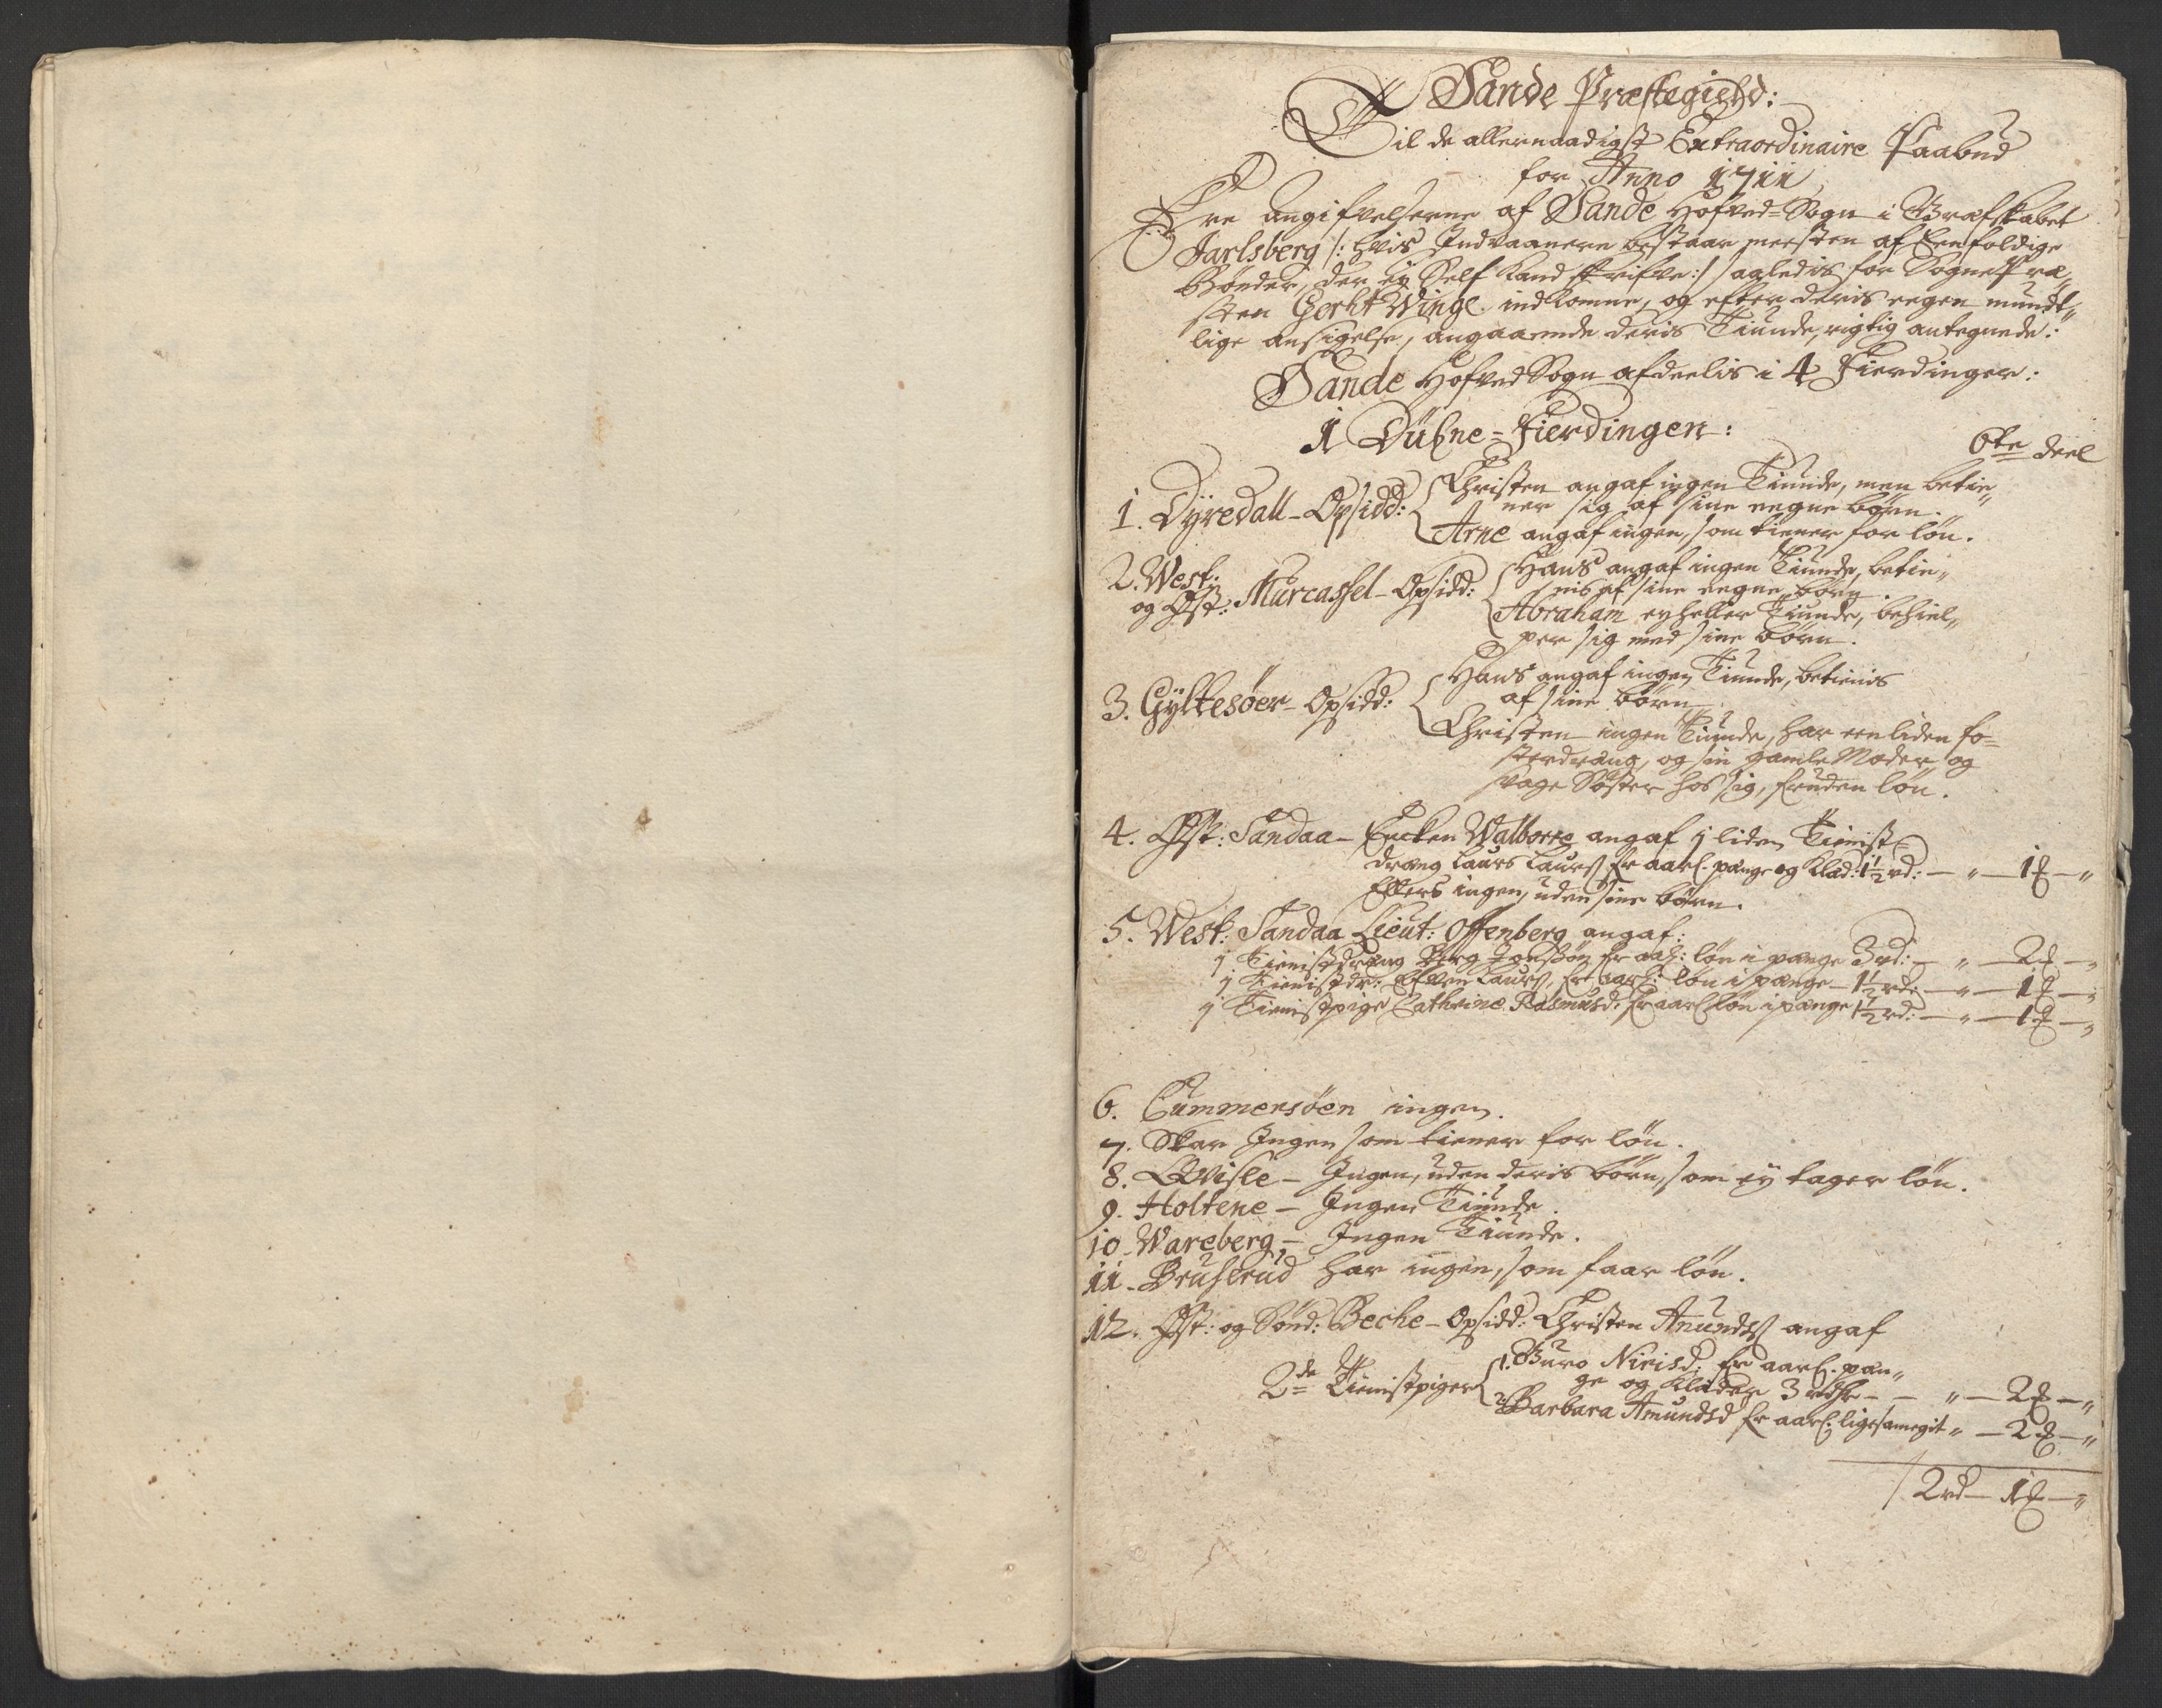 Sande Præstegield:
Til de allernaadigst Extraordinaire Paabud
for Anno 1711
Ere angifvelserne af Sande Hofved-Sogn i Grafskabet
Jarlsberg /: hvis Indvaanere bestaar meesten af Eenfoldige
Bønder, der ey Self kand skrifve:/ saaledis for SognePræ„
sten Gerht Winge indkomne, og efter deris eegen mundt„
lige ansigelse, angaaende deris Tiunde, rigtig antegnede:
Sande Hofved Sogn afdeelis i 4 Fierdinger:
1 Düfne-Fierdingen:
6te deel
1. Dÿredall-Opsidd: Christen angaf ingen Tiunde, men betie„
ner sig af sine eegne børn.
Arne angaf ingen, som tiener for løn.
2. West:
og Øst: Murcassel-Opsidd: Hans angaf ingen Tiunde, betie„
nis af sine eegne børn.
Abraham ey heller Tiunde, behiel„
per sig med sine børn.
3. Gÿltesöer-Opsidd: Hans angaf ingen Tiunde, betienis
af sine børn
Christen ingen Tiunde, har een liden fo=
sterdreng, og sin gamle Moder, og
svage Søster hos sig, foruden løn.
4. Øst: Sandaa- Encken Walborre angaf 1 liden Tienist=
dreng Laurs Laurs: fr aarl. penge og Klæd: 1½ rd: — „ — 1 — „
Ellers ingen, uden sine børn.
5. West: Sandaa Lieut: Offenberg angaf:
1 Tienistdreng Berg Jonsøn fr aarl: løn i penge 3 rd: — „ — 2 — „
1 Tienistdr: Laurs: fr aarl: løn i penge — 1½ rd: — „ — 1 — „
1 Tienistpige Cathrine Rasmusd: fr aarl løn i penge 1½ rd: — „ — 1 — „
6. Cummersöen ingen.
7. Skar Ingen som tiener for løn.
8. Qvisle - Ingen, uden deris børn, som ey tager løn.
9. Holtene - Ingen Tiunde.
10. Wareberg - Ingen Tiunde.
11. Bruserud har ingen, som faar løn.
12. Øst: og Sönd: Beche - Opsidd: Christen Anunds: angaf
2de Tienistpiger 1. Guro Nirisd: fr aarl. pen„
ge og Klæder 3 rdr - — „ — 2 — „
2 Barbara Amundsd fr aarl: ligesaameget „ — 2 — „
2 rd — 1 — „